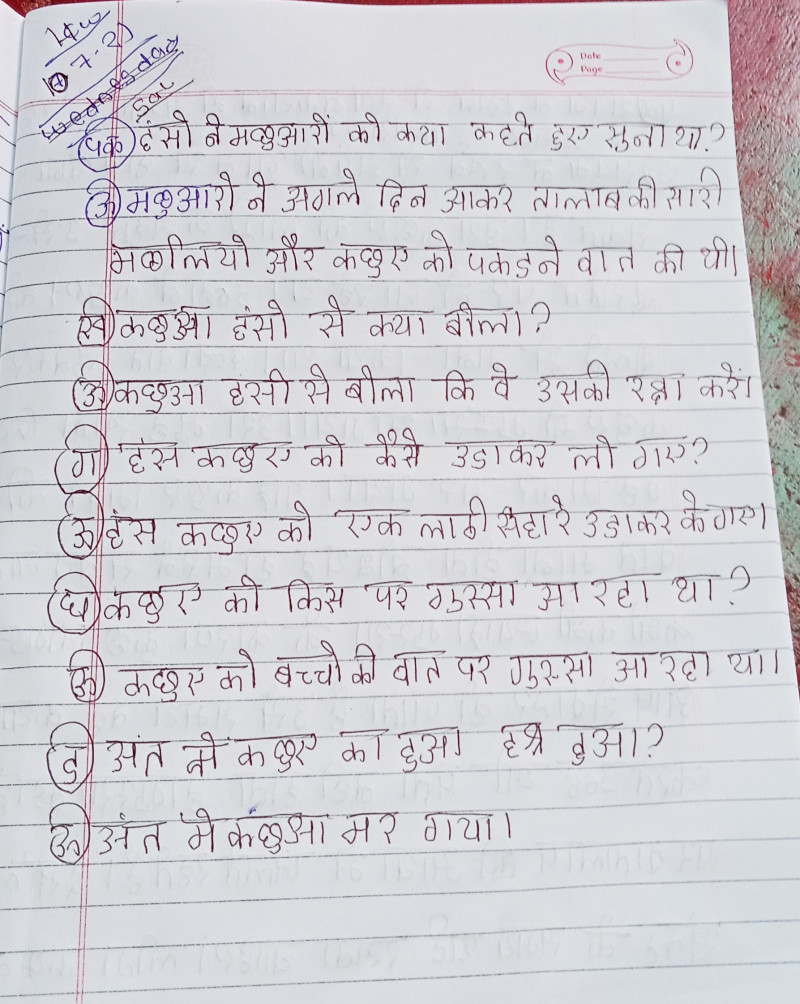 H.W
7-21
Wednesday
Date
Page
क) हंसो ने मछुआरों को क्या कहते हुए सुना था?
उ) मछुआरो ने अगले दिन आकर तालाब की सारी
मछलियो और कछुए को पकडने बात की थी।
ख) कछुआ हंसो से क्या बोला?
उ) कछुआ हंसो से बोला कि वे उसकी रक्षा करें।
ग) हंस कछुए को कैसे उडाकर ली गए?
उ) हंस कछुए को एक लाठी सहारे उडाकर के गए।
घ) कछुए को किस पर गुस्सा आ रहा था?
उ) कछुए को बच्चो की बात पर गुस्सा आ रहा था।
ड) अंत में कछुए का हुआ हश्र हुआ?
उ) अंत मे कछुआ मर गया।